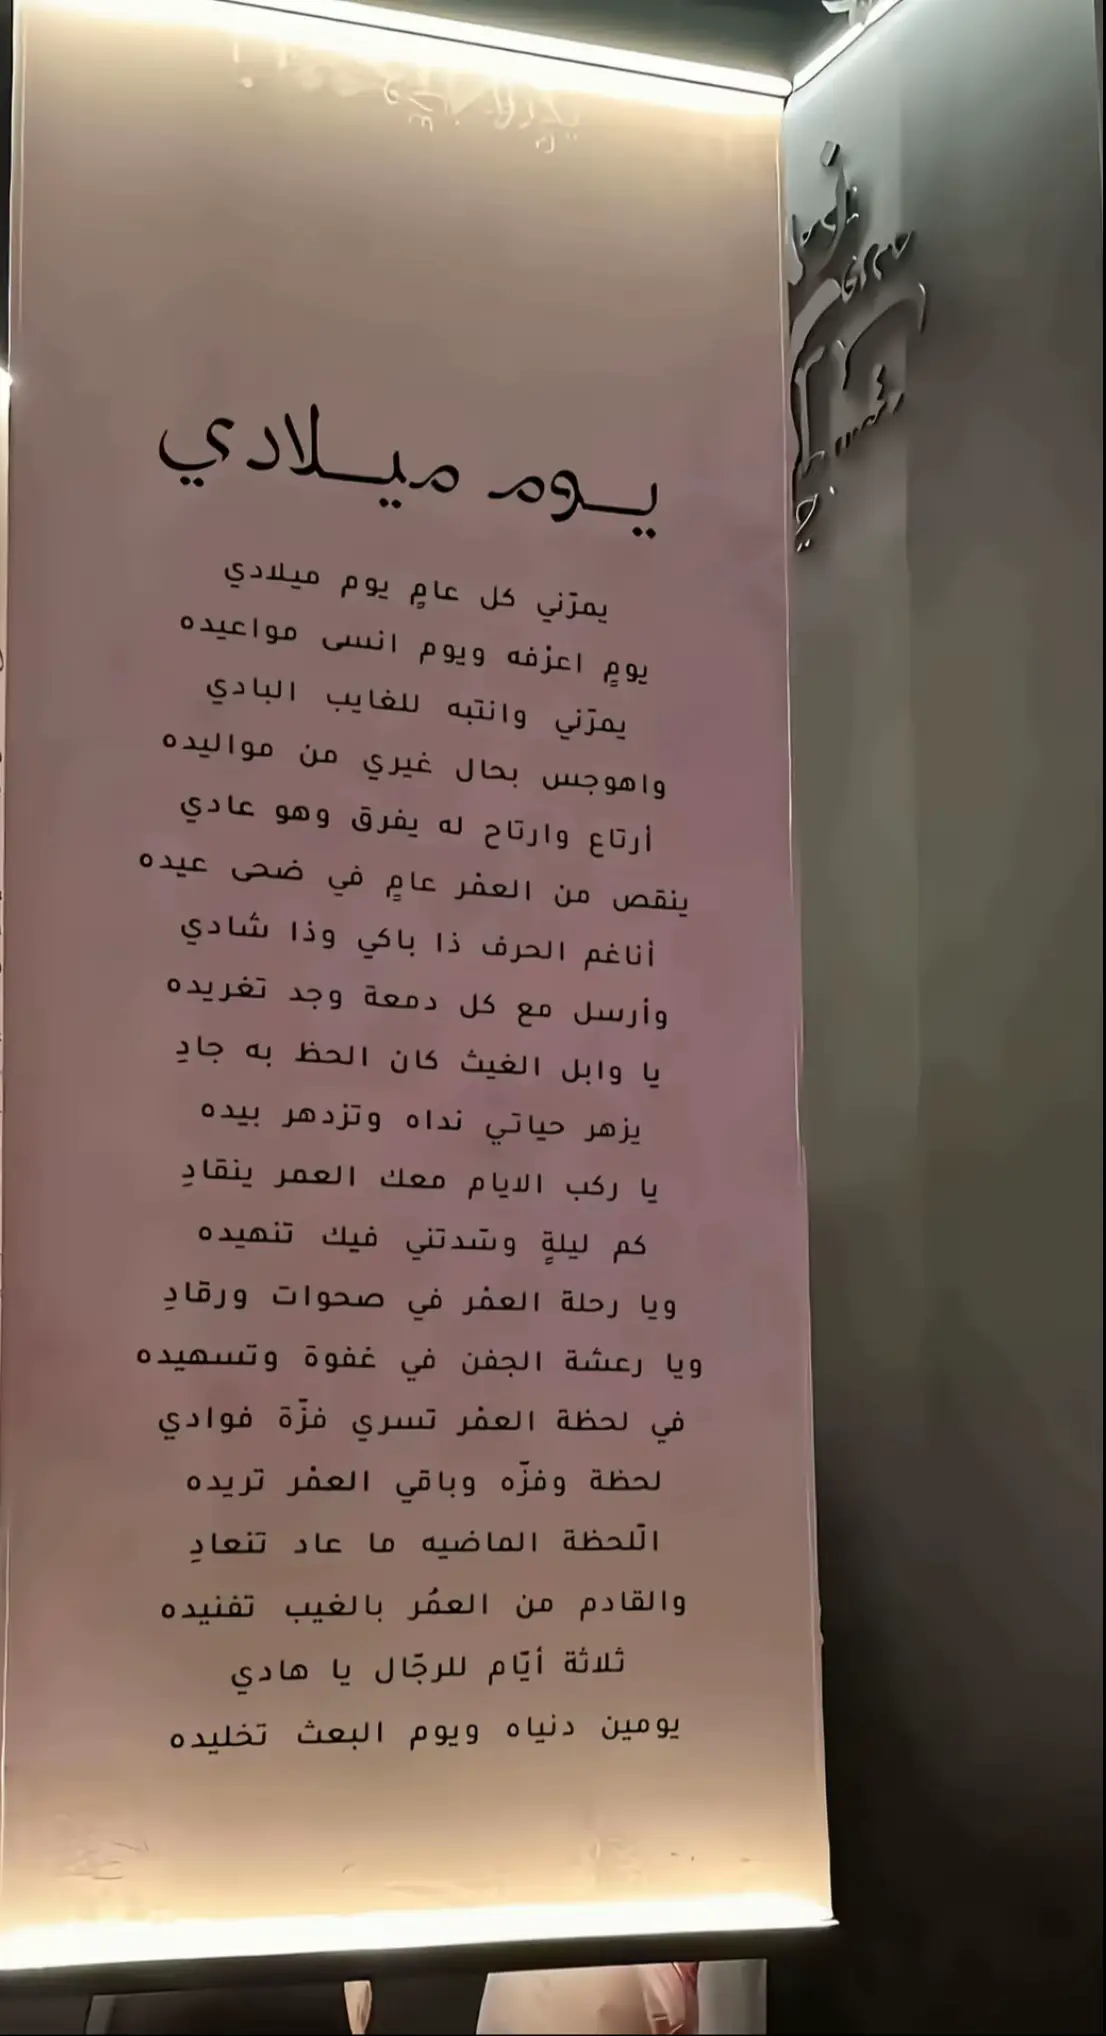 يـوم ميـلادي
يمرّني كل عامٍ يوم ميلادي
يومٍ اعرْفه ويوم انسى مواعيده
يمرّني وانتبه للغايب البادي
واهوجس بحال غيري من مواليده
أرتاع وارتاح له يفرق وهو عادي
ينقص من العمْر عامٍ في ضحى عيده
أناغم الحرف ذا باكي وذا شادي
وأرسل مع كل دمعة وجد تغريده
يا وابل الغيث كان الحظ به جادِ
يزهر حياتي نداه وتزدهر بيده
يا ركب الايام معك العمر ينقادِ
كم ليلةٍ وسّدتني فيك تنهيده
ويا رحلة العمْر في صحوات ورقادِ
ويا رعشة الجفن في غفوة وتسهيده
في لحظة العمْر تسري فزّة فوادي
لحظة وفزّه وباقي العمْر تريده
الّلحظة الماضيه ما عاد تنعادِ
والقادم من العمُر بالغيب تفنيده
ثلاثة أيّام للرجّال يا هادي
يومين دنياه ويوم البعث تخليده